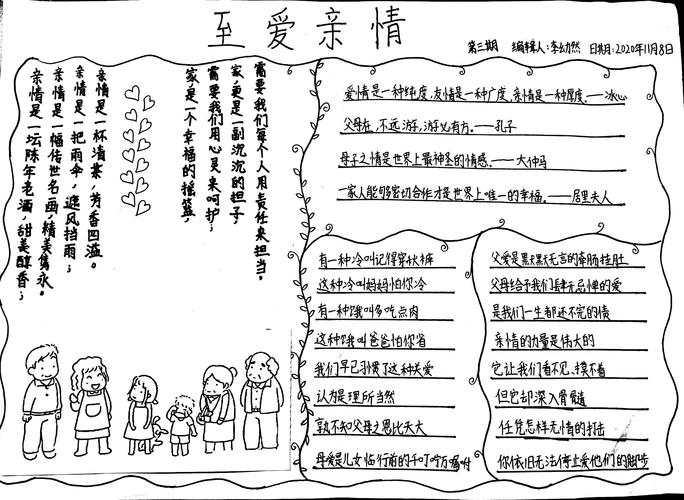 至爱亲情
第三期 编辑人:李幼然 日期:2020年11月8日
亲情是一坛陈年老酒,甜美醇香;
亲情是一幅传世名画,精美隽永。
亲情是一把雨伞,遮风挡雨;
亲情是一杯清茶,芳香四溢。
家是一个幸福的摇篮,
需要我们用心灵来呵护;
家,更是一副沉沉的担子
需要我们每个人用责任来担当。
爱情是一种纯度,友情是一种广度,亲情是一种厚度.——冰心
父母在,不远游,游必有方.——孔子
母子之情是世界上最神圣的情感.——大仲马
一家人能够密切合作才是世界上唯一的幸福.——居里夫人
有一种冷叫记得穿秋裤
这种冷叫妈妈怕你冷
有一种饿叫多吃点肉
这种饿叫爸爸怕你省
我们早已习惯了这种关爱
认为是理所当然
孰不知父母之恩比天大
母爱是儿女临行前的千叮咛万嘱咐
父爱是默默无言的牵肠挂肚
父母给予我们肆无忌惮的爱
是我们一生都还不完的债
亲情的力量是伟大的
它让我们看不见、摸不着
但它却深入骨髓
任凭怎样无情的打击
你依旧无法停止爱他们的脚步